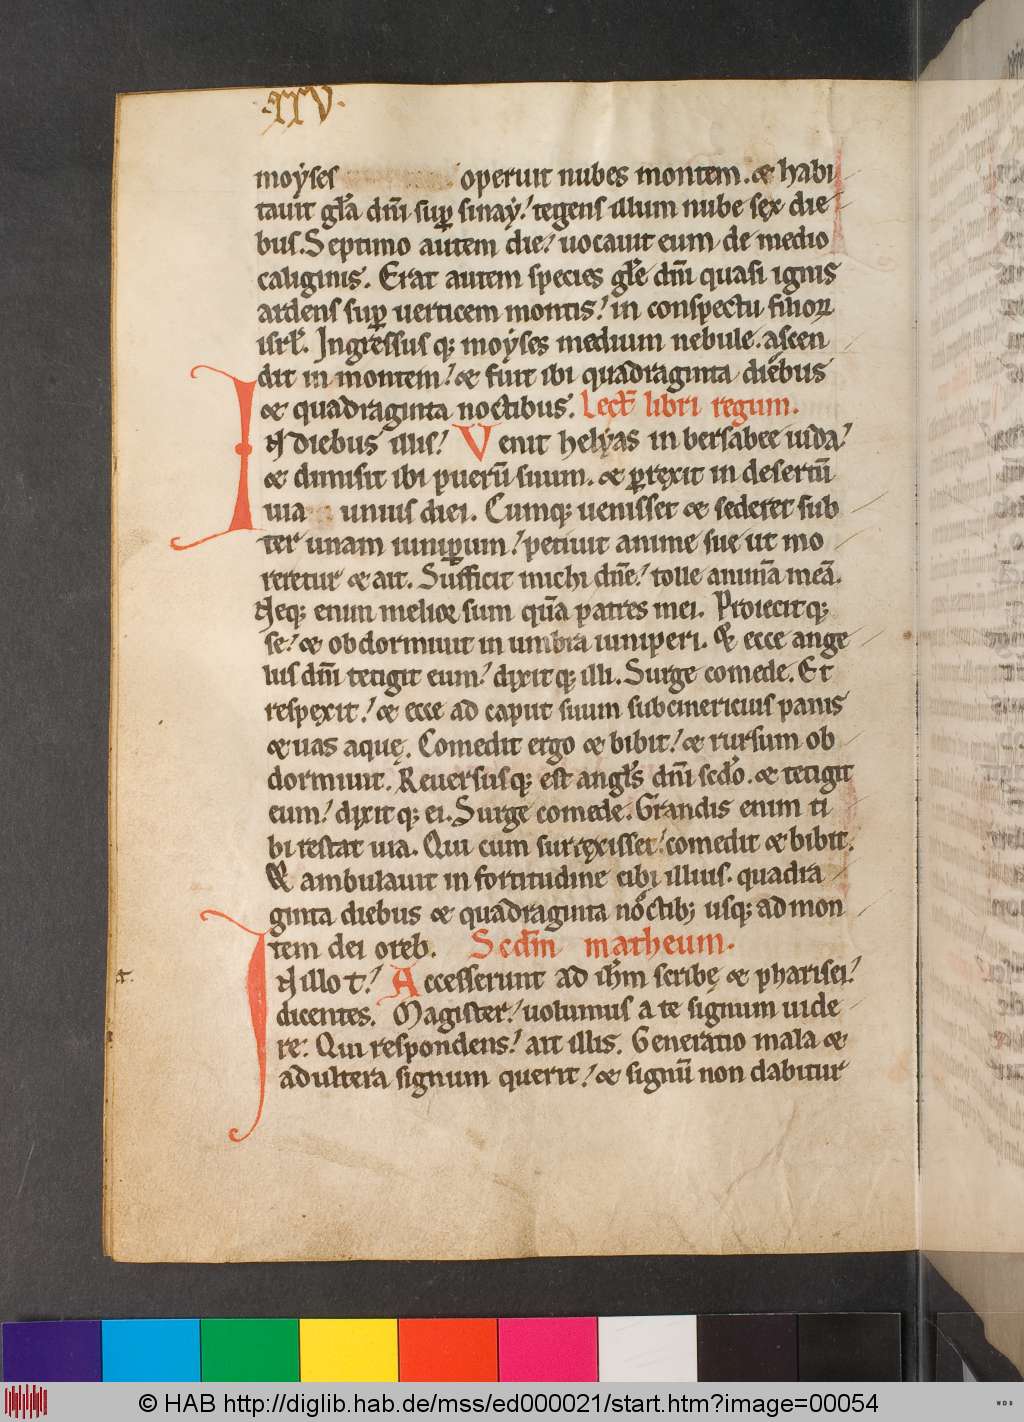 .XXV.
moyses operuit nubes montem. et habi
tauit gl̄a dn̄i sup̱ sinay. tegens illum nube sex die
bus. Septimo autem die. uocauit eum de medio
caliginis. Erat autem species gl̄e dn̄i quasi ignis
ardens sup̱ uerticem montis. in conspectu filioꝝ
isrl̄. Ingressus qꝫ moyses medium nebule. ascen
dit in montem. et fuit ibi quadraginta diebus
et quadraginta noctibus. Lect̄ libri regum.
IN diebus illis. Venit helyas in bersabee iuda.
et dimisit ibi puerū suum. et ꝑrexit in desertū
uia unius diei. Cumqꝫ uenisset et sederet sub
ter unam iuniꝑum. petiuit anime sue ut mo
reretur et ait. Sufficit michi dn̄e. tolle animā meā.
Neqꝫ enim melior sum quā patres mei. Proiecitqꝫ
se. et obdormiuit in umbra iuniperi. Et ecce ange
lus dn̄i tetigit eum. dixitqꝫ illi. Surge comede. Et
respexit. et ecce ad caput suum subcinericius panis
et uas aquę. Comedit ergo et bibit. et rursum ob
dormiuit. Reuersusqꝫ est angl̄s dn̄i scd̄o. et tetigit
eum. dixitqꝫ ei. Surge comede. Grandis enim ti
bi restat uia. Qui cum surrexisset. comedit et bibit.
Et ambulauit in fortitudine cibi illius. quadra
ginta diebus et quadraginta noctibꝫ usqꝫ ad mon
tem dei oreb. Scd̄m matheum.
IN illo t. Accesserunt ad ih̄m scribę et pharisei.
dicentes. Magister. uolumus a te signum uide
re. Qui respondens. ait illis. Generatio mala et
adultera signum querit. et signū non dabitur
© HAB http://diglib.hab.de/mss/ed000021/start.htm?image=00054